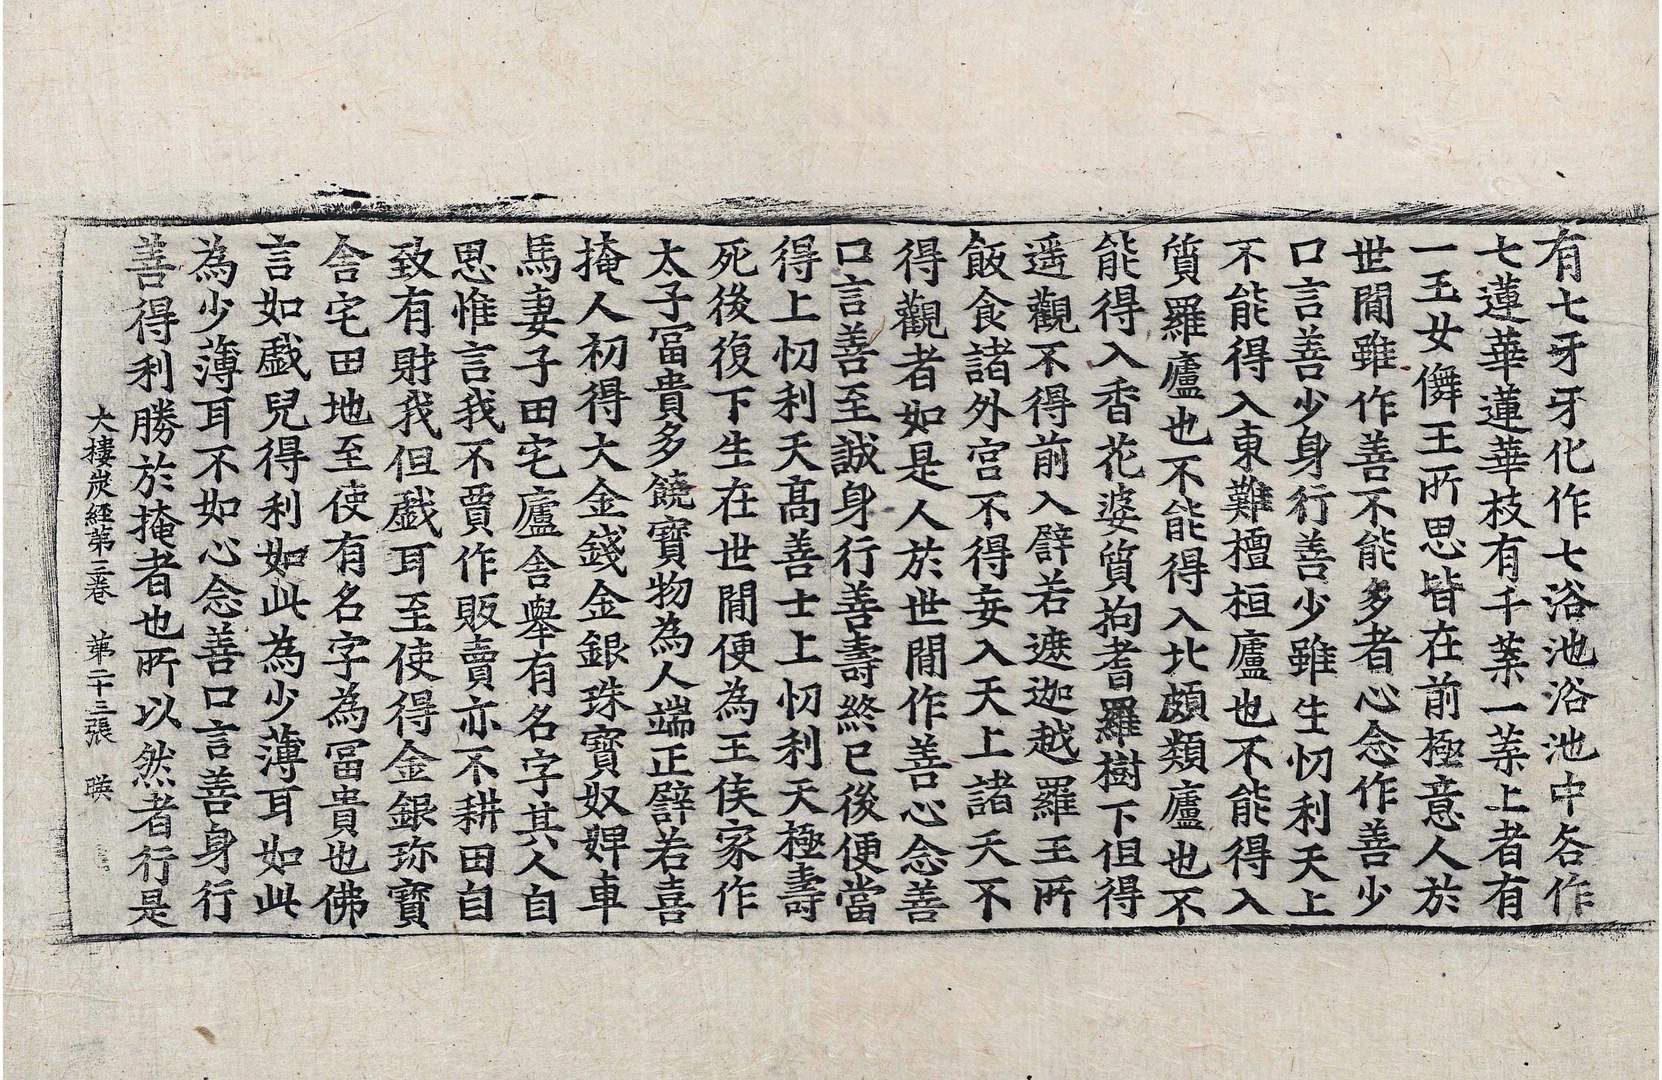 有七牙牙化作七浴池浴池中各作
七蓮華蓮華枝有千葉一葉上者有
一玉女儛王所思皆在前極意人於
世閒雖作善不能多者心念作善少
口言善少身行善少雖生忉利天上
不能得入東難檀桓廬也不能得入
質羅廬也不能得入比頗類廬也不
能得入香花婆質拘耆羅樹下但得
遥觀不得前入譬若遮迦越羅王所
飯食諸外宮不得妄入天上諸天不
得觀者如是人於世閒作善心念善
口言善至誠身行善壽終已後便當
得上忉利天高善士上忉利天極壽
死後復下生在世閒便為王侯家作
太子冨貴多饒寶物為人端正譬若喜
掩人初得大金錢金銀珠寶奴婢車
馬妻子田宅廬舎舉有名字其人自
思惟言我不賈作販賣亦不耕田自
致有財我但戲耳至使得金銀珎寶
舎宅田地至使有名字為冨貴也佛
言如戲兒得利如此為少薄耳如此
為少薄耳不如心念善口言善身行
善得利勝於掩者也所以然者行是
大樓炭經第三卷 第二十三張 暎